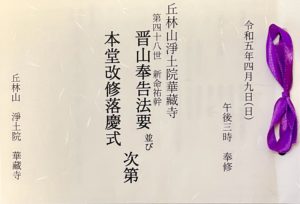 令和五年四月九日(日)
午後三時 奉修
丘林山淨土院華蔵寺
第四十八世 新命祐幹
晋山奉告法要 並び
本堂改修落慶式 次第
丘林山 淨土院 華蔵寺